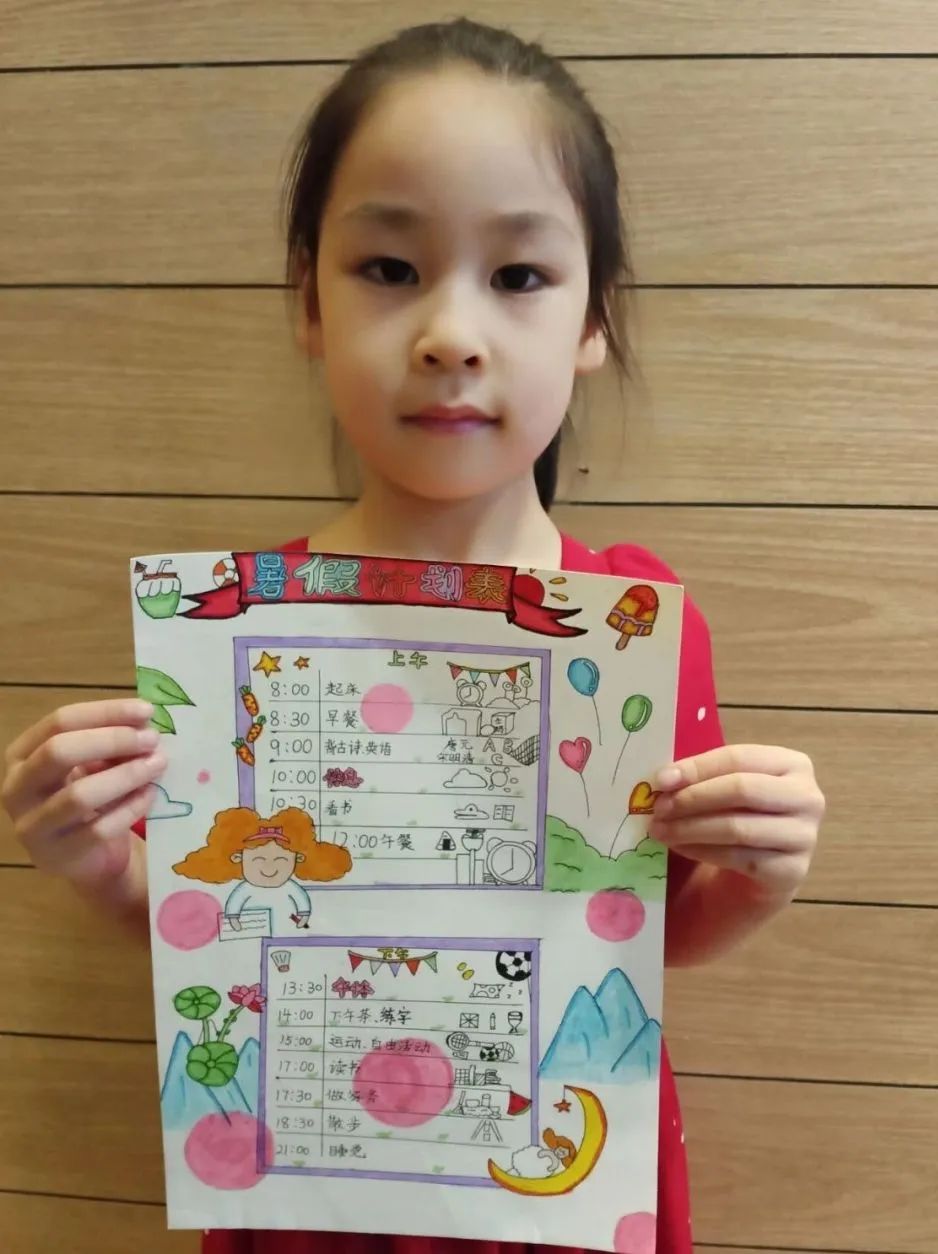 暑假计划表
上午
8:00 起床
8:30 早餐
9:00 背古诗.英语 唐元宋明清 A B C
10:00 休息
10:30 看书
12:00 午餐
下午
13:30 午休
14:00 下午茶、练字
15:00 运动、自由活动
17:00 读书
17:30 做家务
18:30 散步
21:00 睡觉